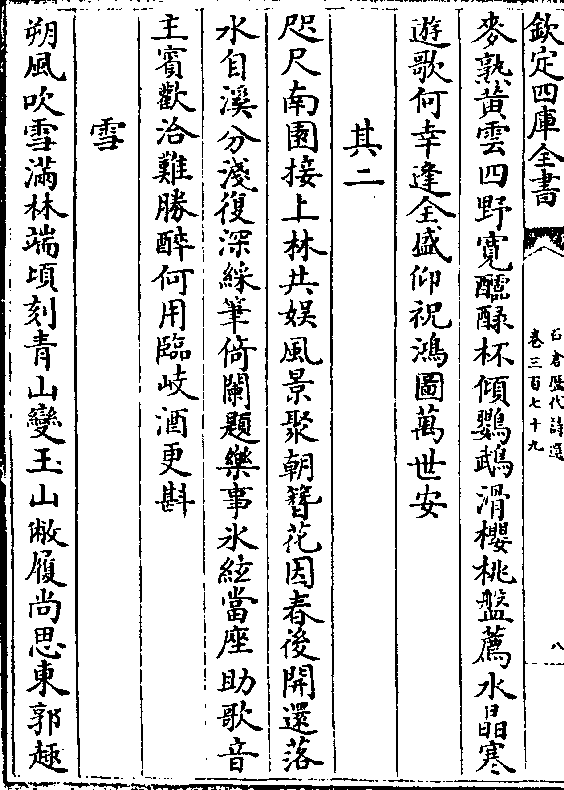 欽定四庫全書
石倉歷代詩選
卷三百七十九
八
麥熟黄雲四野寛醽醁杯傾鸚鵡滑櫻桃盤薦水晶寒
遊歌何幸逢全盛仰祝鴻圖萬世安
其二
咫尺南園接上林共娱風景聚朝簪花因春後開還落
水自溪分淺復深綵筆倚闌題樂事氷絃當座助歌音
主賓歡洽難勝醉何用臨岐酒更斟
雪
朔風吹雪滿林端頃刻青山變玉山敝履尚思東郭趣